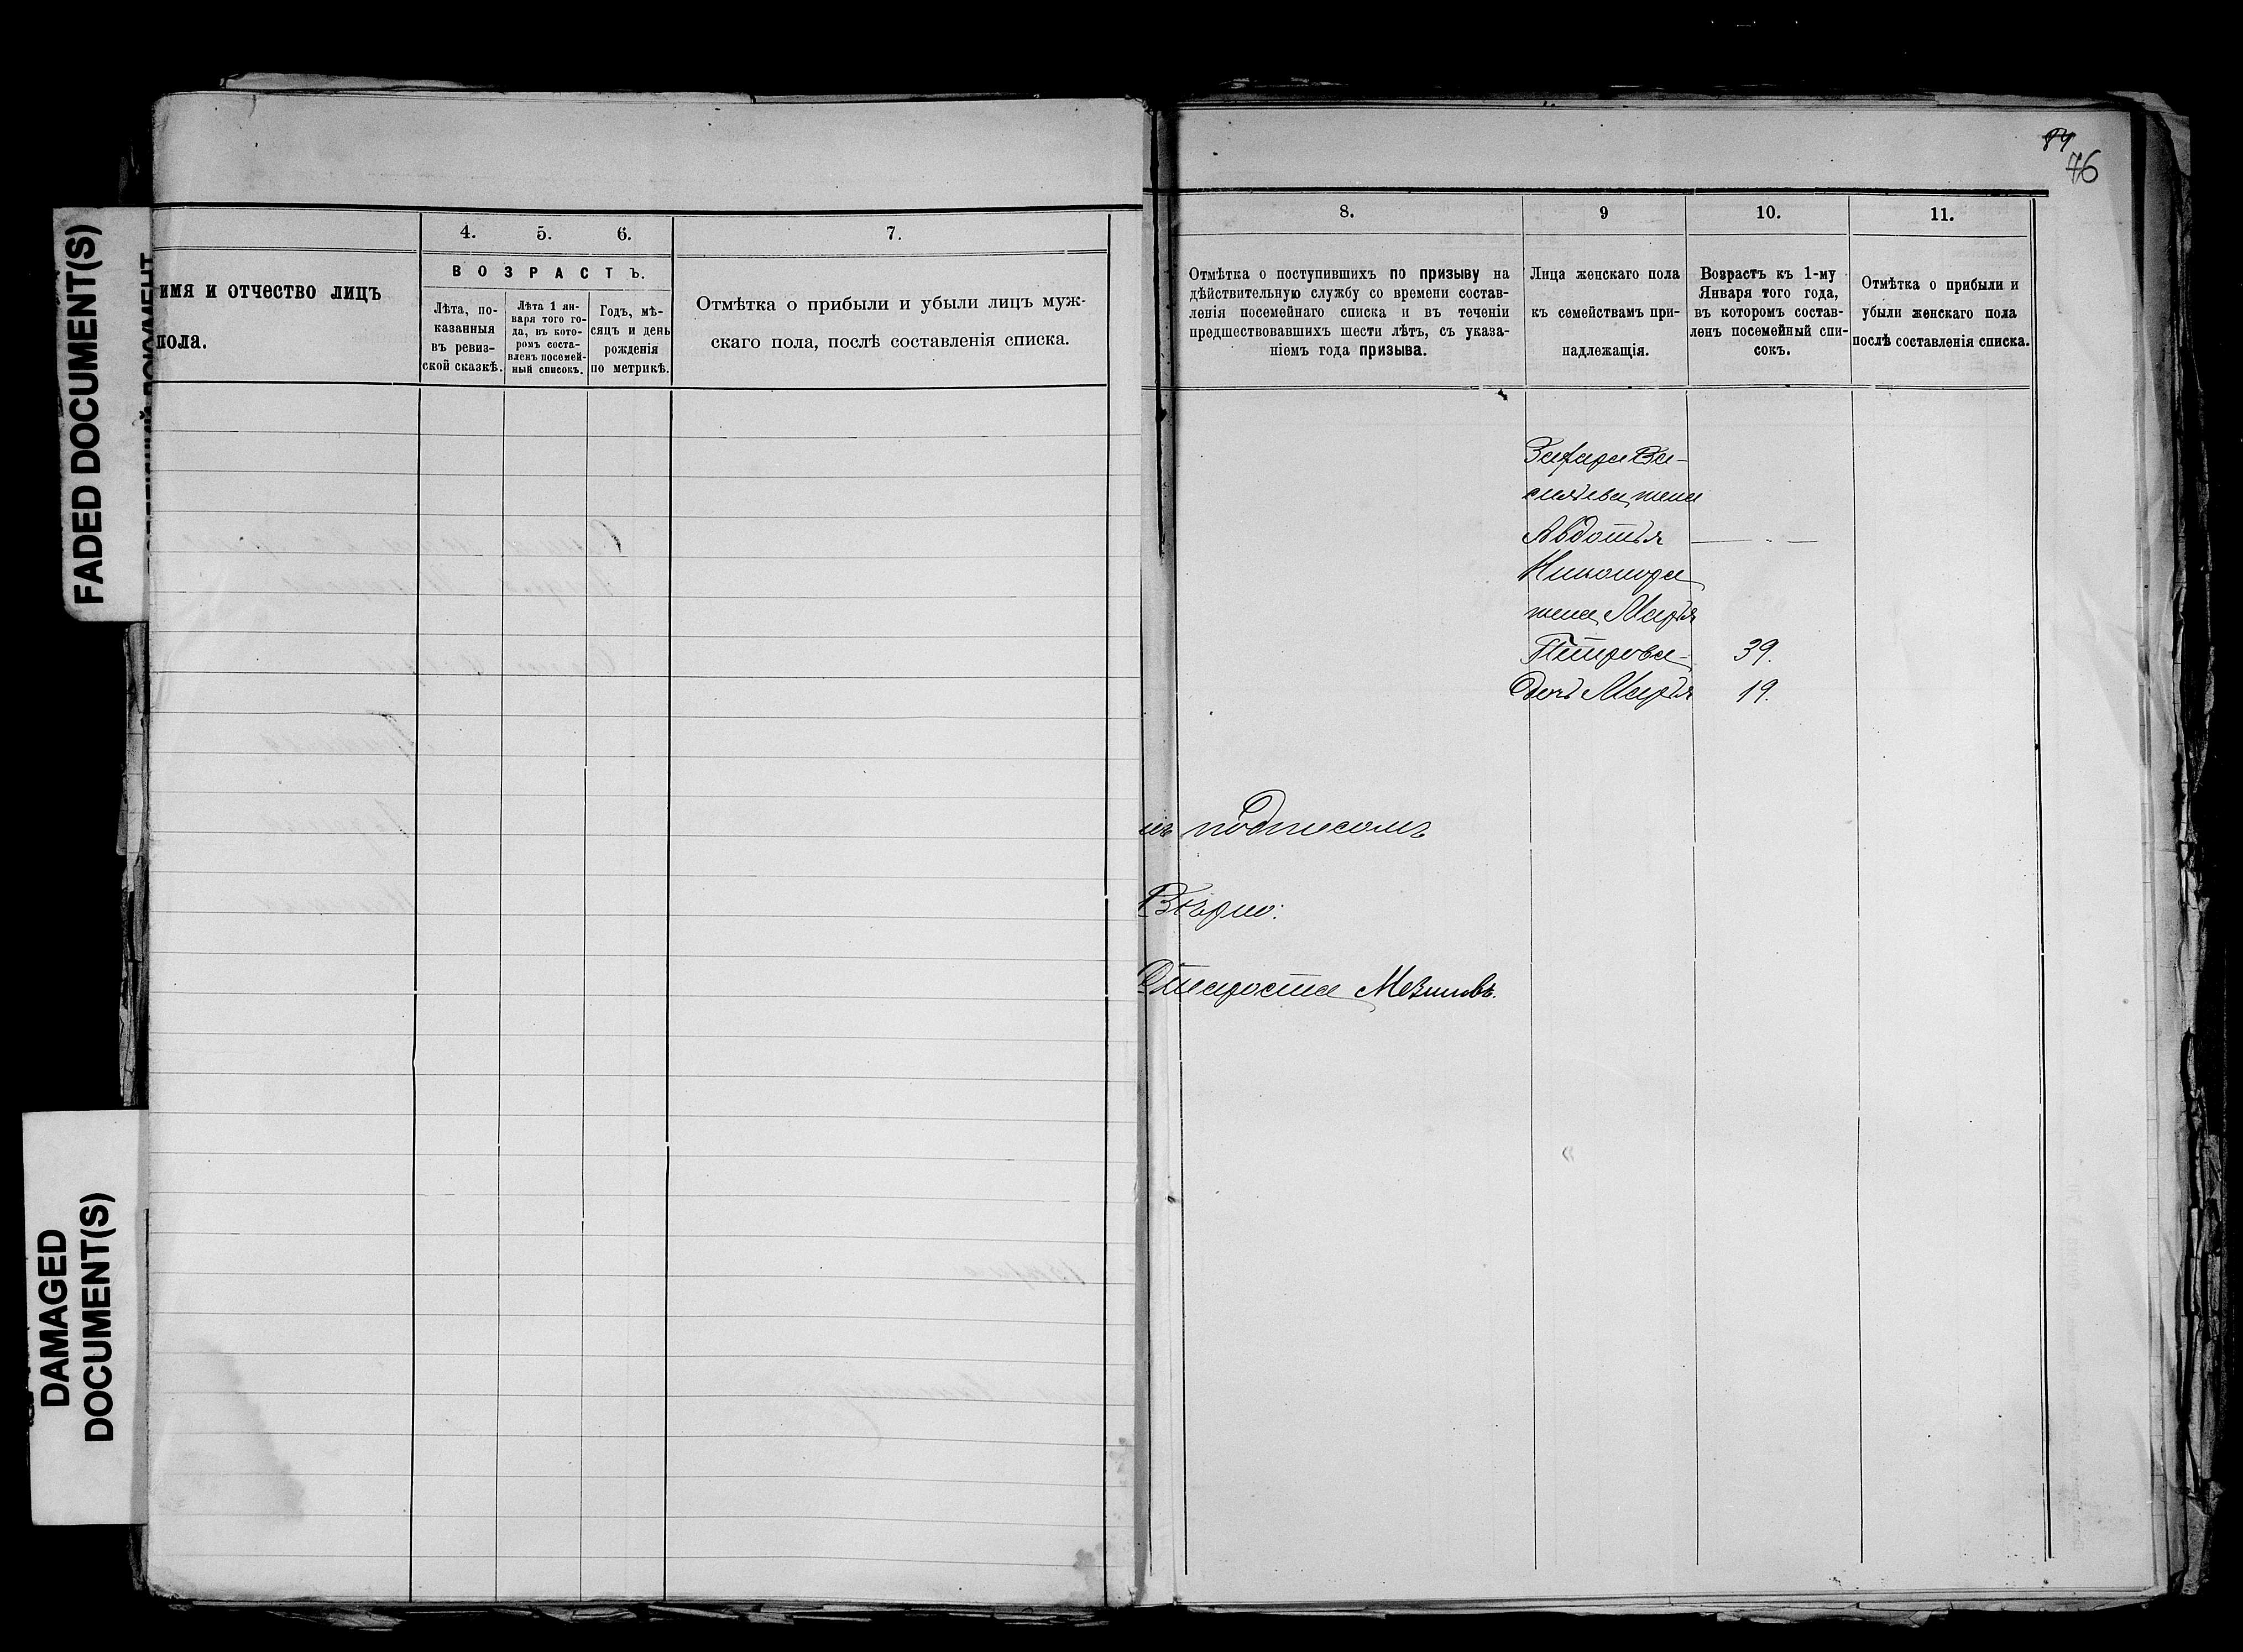 FADED DOCUMENT(S)
DAMAGED
DOCUMENT(S)
имя и отчество лицъ
пола.
4. 5. 6.
ВОЗРАСТЪ.
Лѣта, по-
казанныя
въ ревиз-
ской сказкѣ.
Лѣта 1 ян-
варя того го-
да, въ кото-
ромъ соста-
вленъ посемей-
ный списокъ.
Годъ, мѣ-
сяцъ и день
рожденія
по метрикѣ.
7.
Отмѣтка о прибыли и убыли лицъ муж-
скаго пола, послѣ составленія списка.
84
76
8.
Отмѣтка о поступившихъ по призыву на
дѣйствительную службу со времени состав-
ленія посемейнаго списка и въ теченіи
предшествовавшихъ шести лѣтъ, съ указа-
ніемъ года призыва.
9
Лица женскаго пола
къ семействамъ при-
надлежащія.
10.
Возрастъ къ 1-му
Января того года,
въ которомъ состав-
ленъ посемейный спи-
сокъ.
11.
Отмѣтка о прибыли и
убыли женскаго пола
послѣ составленія списка.
Захара Ва-
сильева жена
Авдотья — „ —
Никонора
жена Марья
Петрова 39.
Дочь Марья 19.
подписомъ
Вѣрно:
Староста